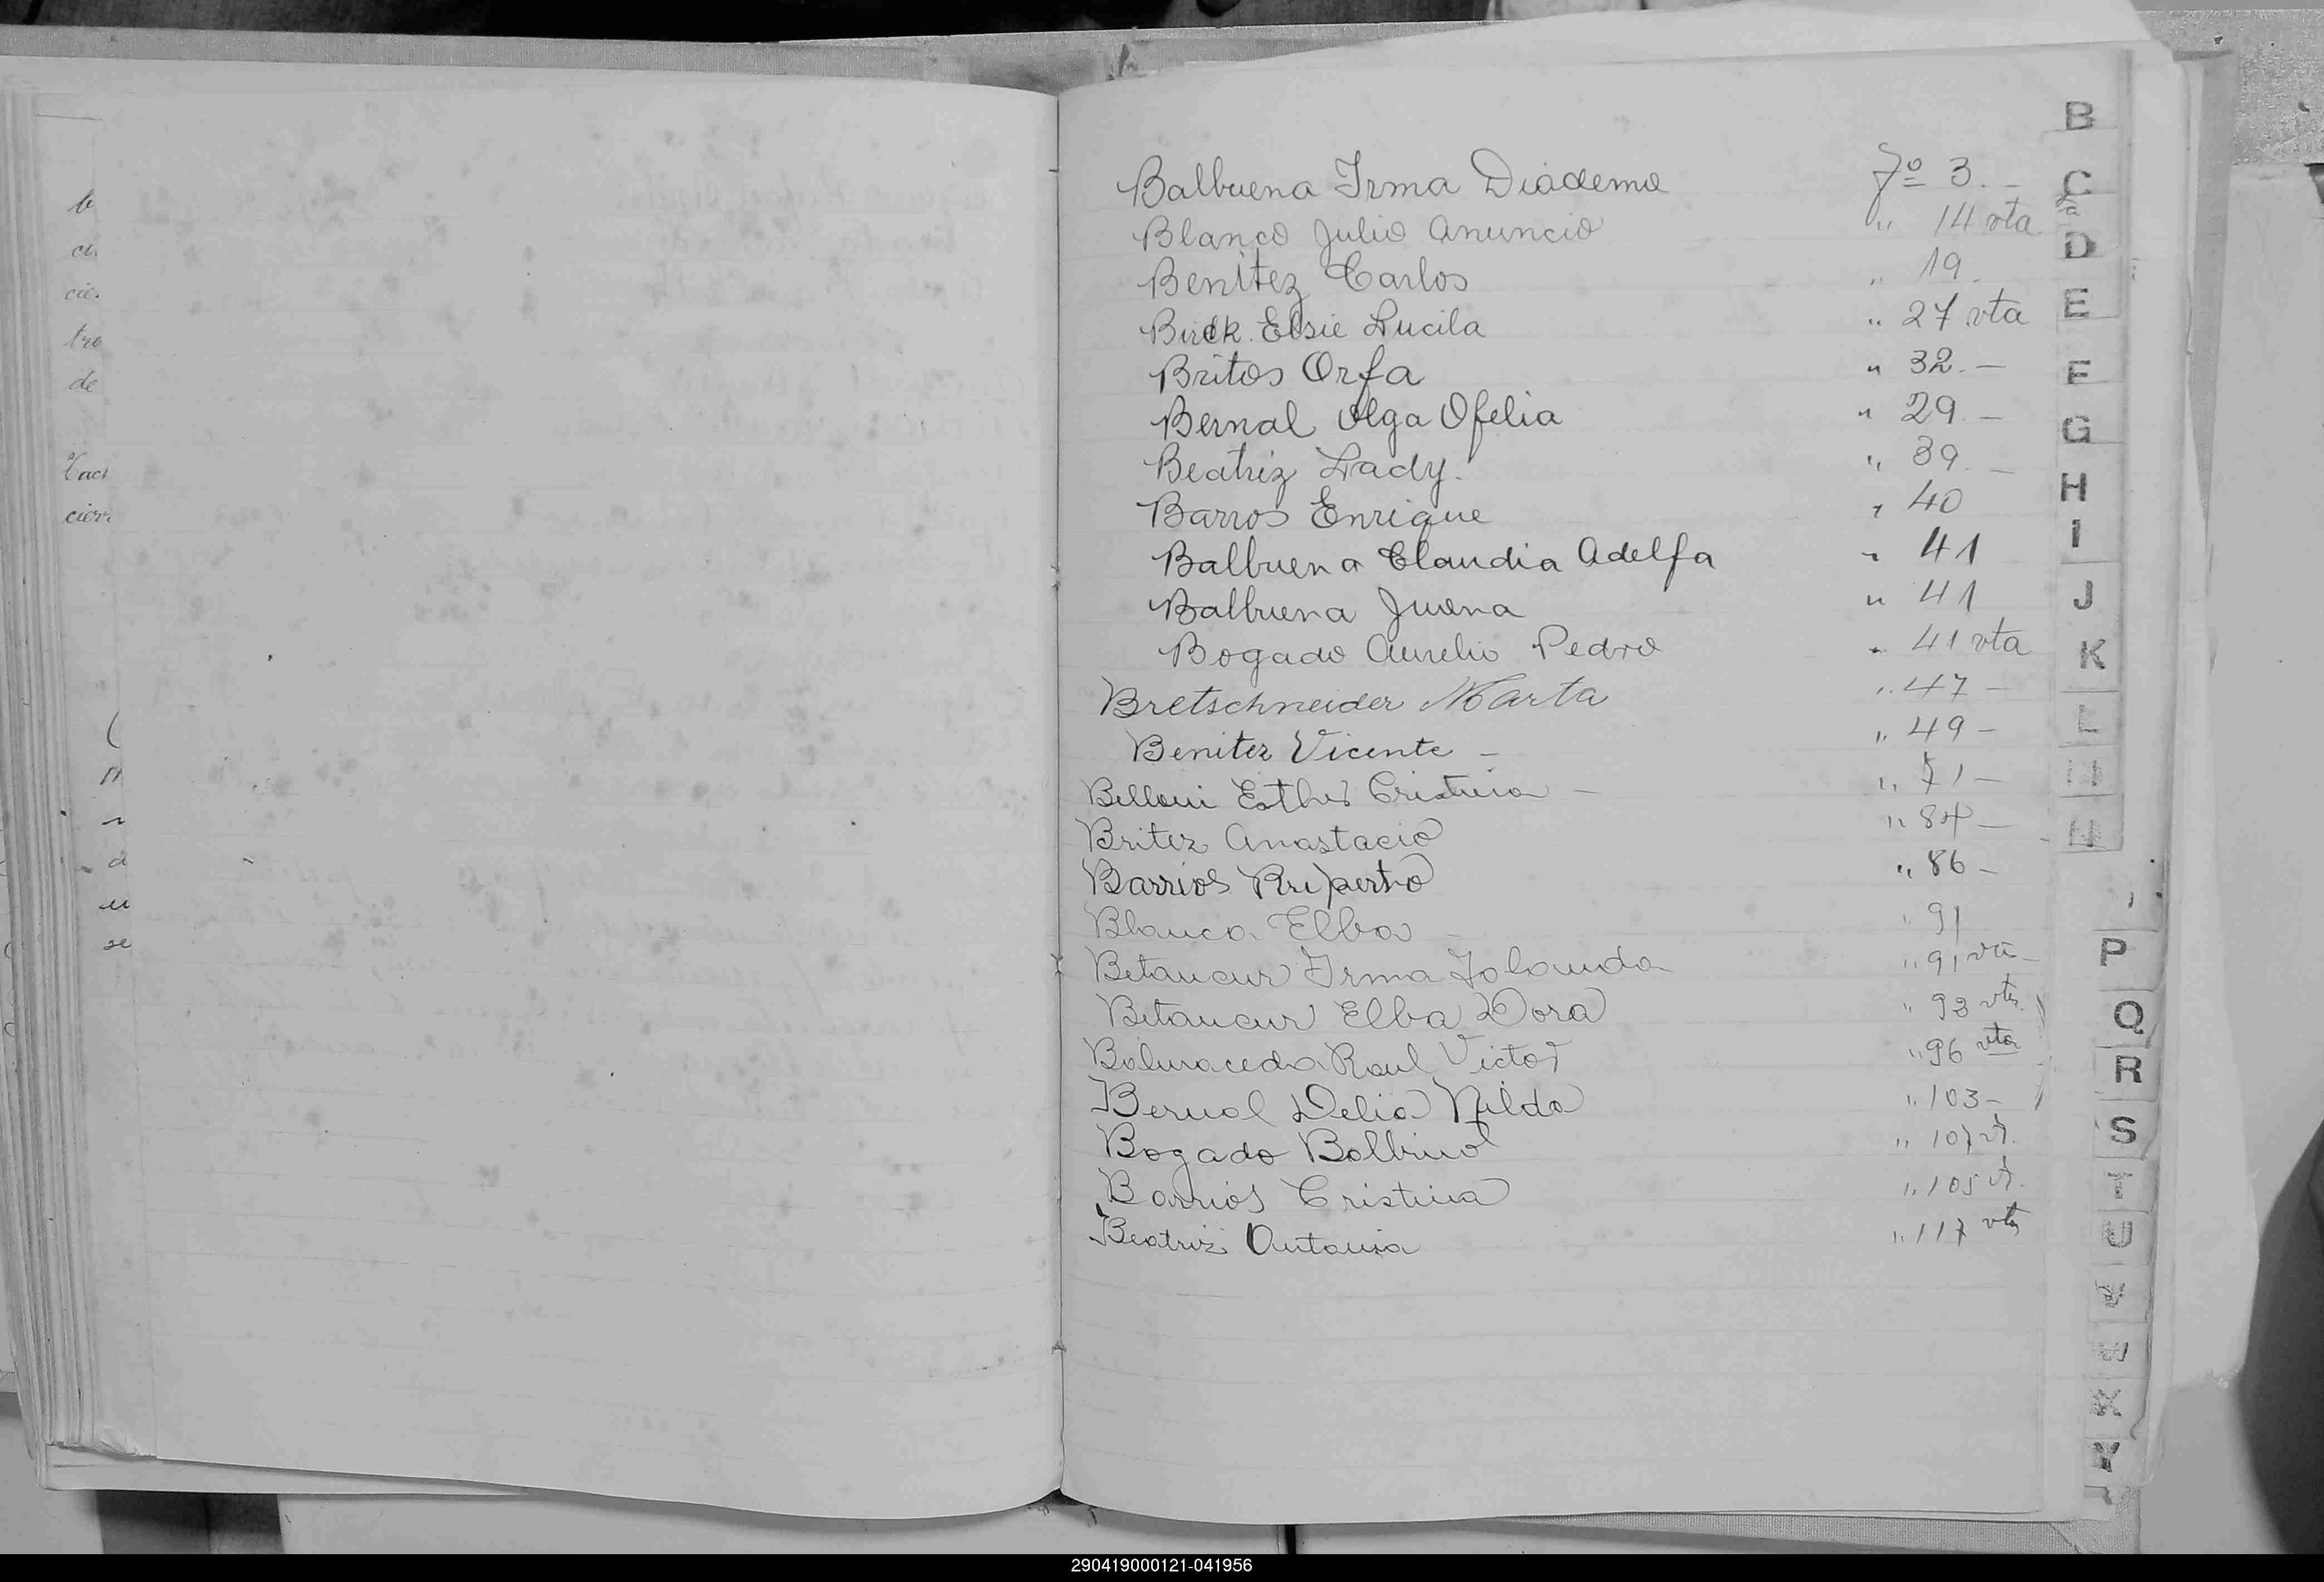 b
cier
tro
de
cierr
se
Balbuena Irma Diadema fº 3. –
Blanco Julio Anuncio " 14 vta
Benitez Carlos " 19
Birck Elsie Lucila " 27 vta
Britos Orfa " 32. –
Bernal Olga Ofelia " 29 –
Beatriz Lady. " 39 –
Barros Enrique " 40
Balbuena Claudia Adelfa " 41
Balbuena Juana " 41
Bogado Aurelio Pedro " 41 vta
Bretschneider Marta " 47 –
Benitez Vicente – " 49 –
Belloni Esther Cristina – " 71 –
Britez Anastacio " 84 –
Barrios Ruperto " 86 –
Blanca Elba – " 91
Betancur Irma Iolanda " 91 vta –
Betancur Elba Dora " 93 vta
Balmaceda Raul Victor " 96 vta
Bernal Delia Nilda " 103 –
Bogado Balbino " 107 vt.
Barrios Cristina " 105 vt.
Beatriz Antonia " 117 vta
B
C
D
E
F
G
H
I
J
K
L
N
P
Q
R
S
T
U
W
X
Y
290419000121-041956